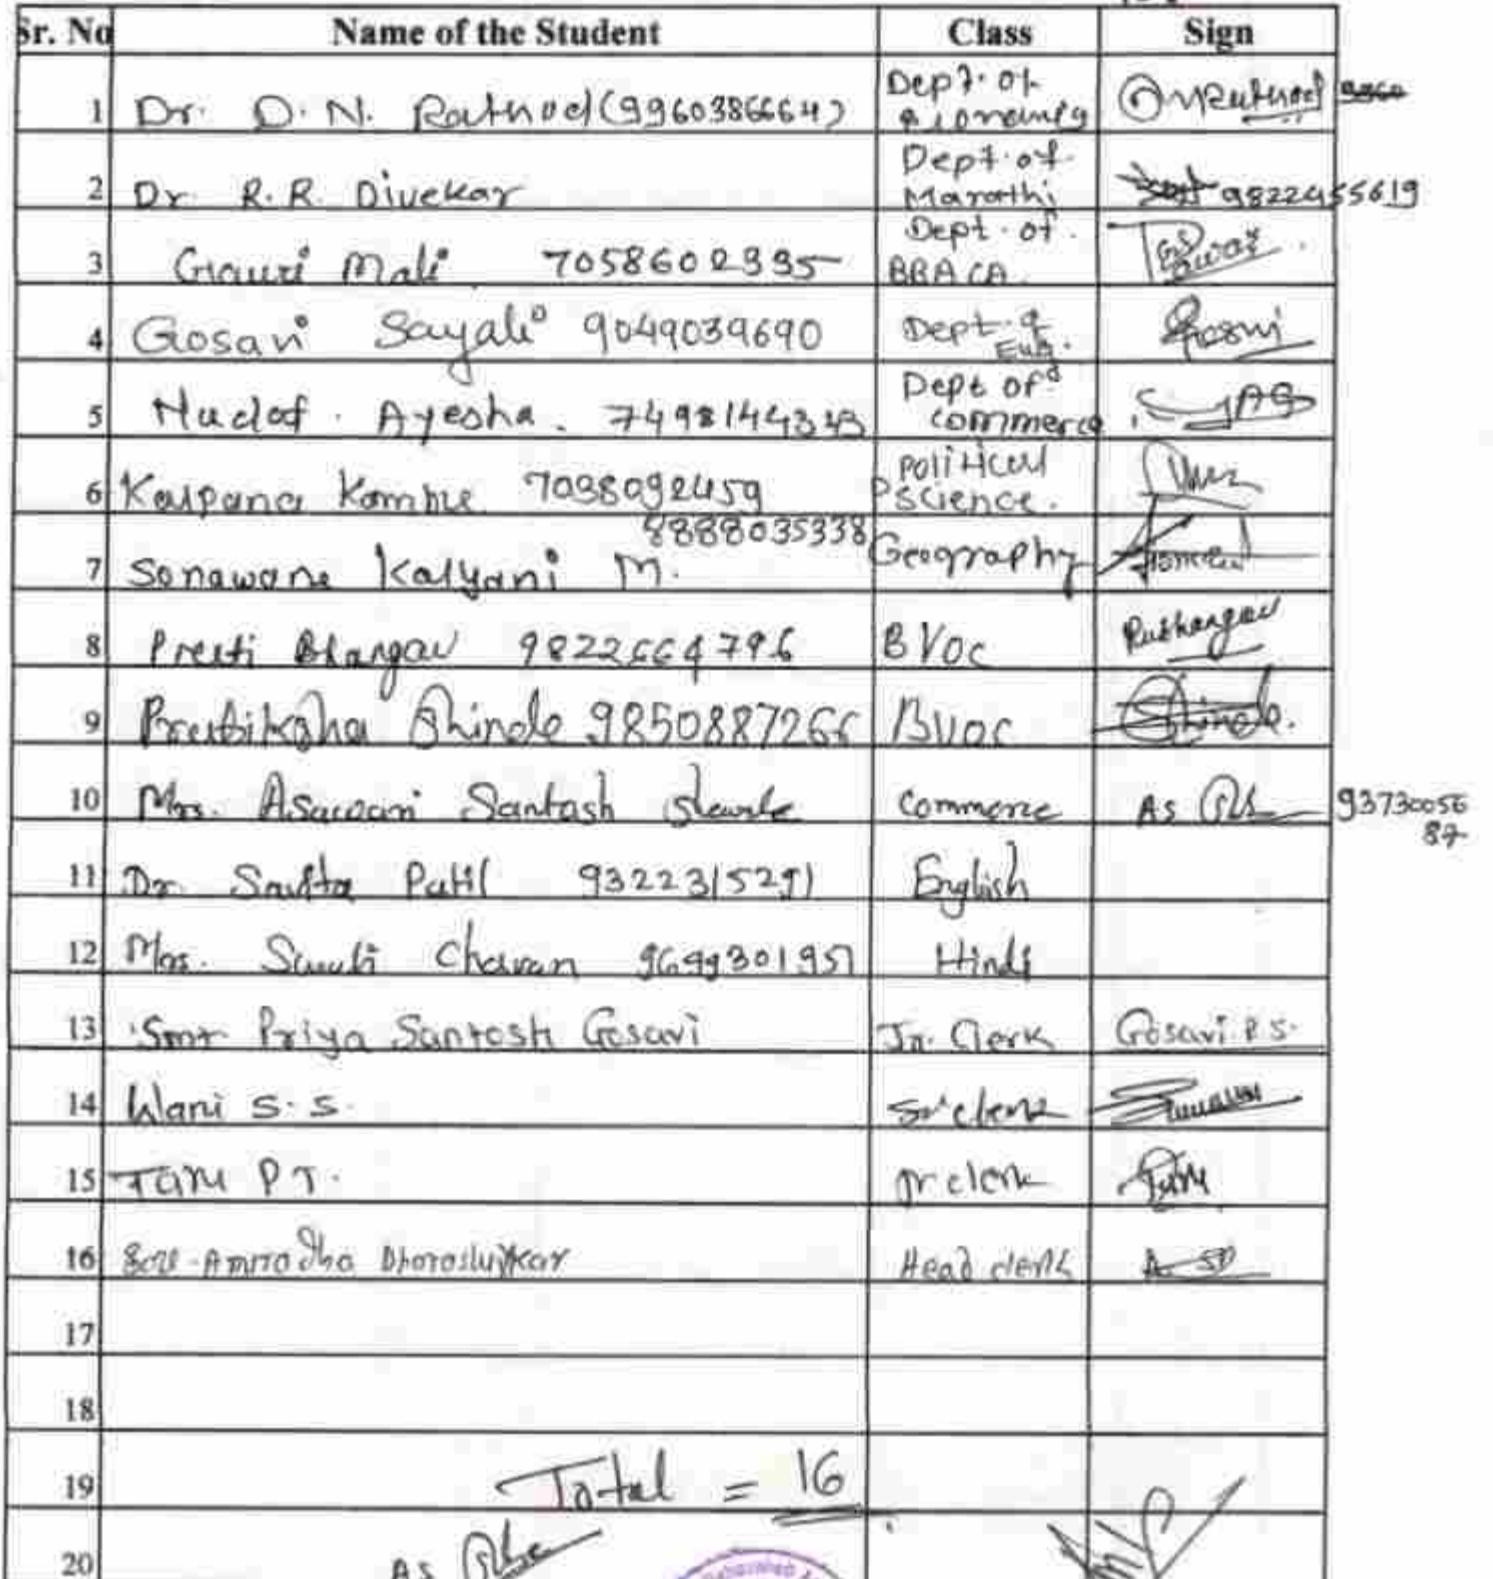 Sr. No Name of the Student Class Sign
1 Dr. D. N. Rathod (9960386664) Dept. of
2 Dr R.R. Divekar Dept. of Marathi 9822455619
3 Gauri Mali 7058602995 Dept. of BBA CA
4 Gosavi Sayali 9049039690 Dept. of Eng.
5 Ayesha. Dept of commerce
6 Kalpana Kamble 7038092459 Political Science.
7 Sonawane Kalyani M. 8888035338 Geography
8 Preeti Bhangav 9822664796 B Voc
9 Shinde 9850887266 BVoc Shinde.
10 Mrs. Santosh Commerce As 93730056
87
11 Dr Savita Patil 9322315291 English
12 Mrs. Chavan 9699301951 Hindi
13 Smt Priya Santosh Gosavi Jr. Clerk Gosavi. P S.
14 Wani S. S. Sr clerk
15 P T. Jr clerk
16 Head clerk
17
18
19 Total = 16
20 As